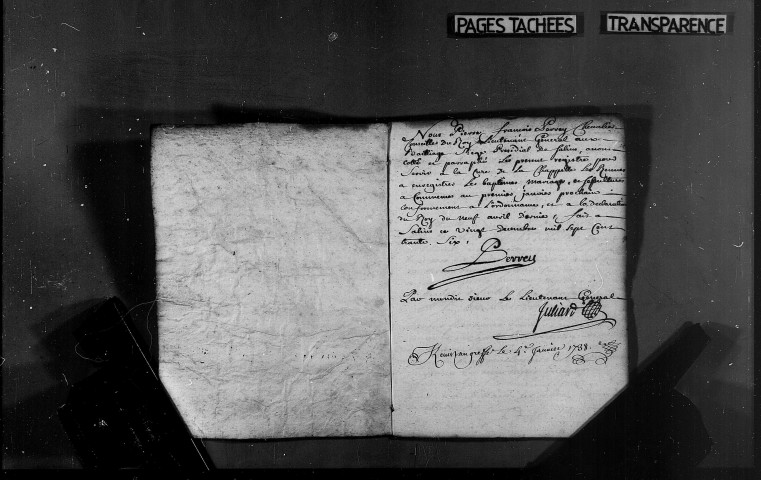 PAGES TACHÉES TRANSPARENCE
Nous Pierre François Perrey Chevalier
Conseiller du Roy Lieutenant General aux
Bailliage Siege Presidial de Salins, avons
cotté et parraphé Le present registre pour
Servir a la Cure de la Chappelle
a enregistrer Les baptêmes mariages, et sepultures
a Commencer au premier janvier prochain
conformement a Lordonnance, et a la declaration
du Roy du neuf avril dernier, fait a
Salins ce vingt decembre mil Sept Cent
trente Six.
Perrey
Par mondit sieur Le Lieutenant General
Juliard
le 4e Janvier 1738.